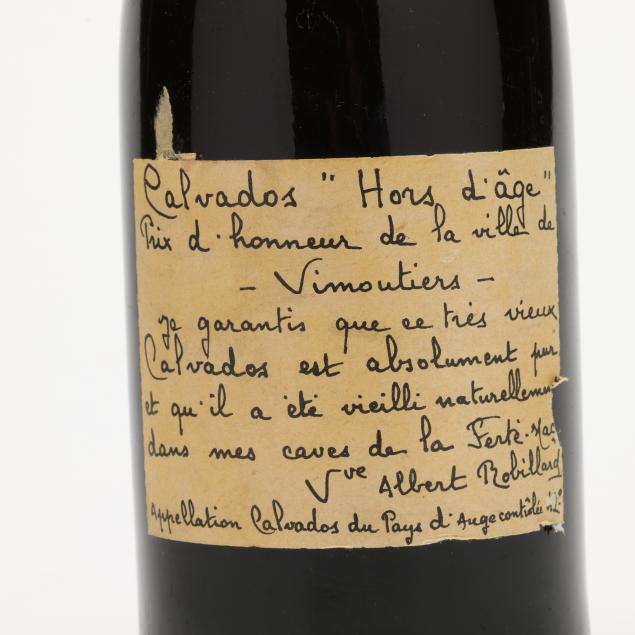 Calvados "Hors d'âge"
Prix d'honneur de la ville de
- Vimoutiers -
Je garantis que ce très vieux
Calvados est absolument pur
et qu'il a été vieilli naturellement
dans mes caves de la Ferté-Mac
Vve Albert Robillard
Appellation Calvados du Pays d'Auge contrôlée